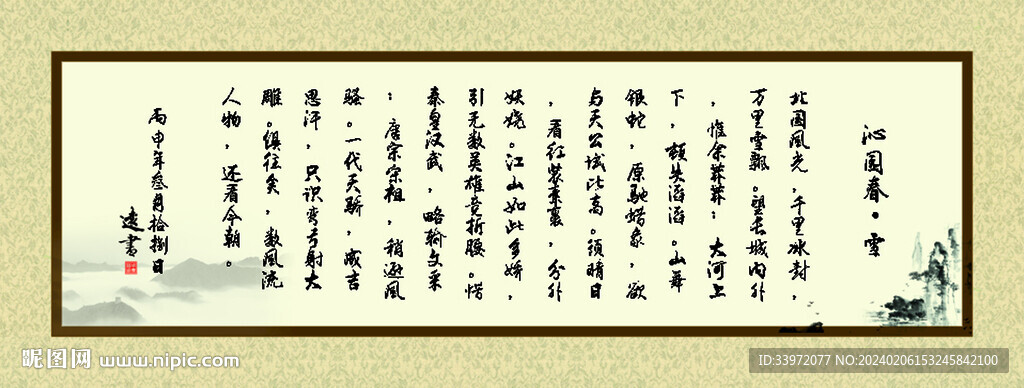 沁园春·雪
北国风光，千里冰封，
万里雪飘。望长城内外
，惟余莽莽；大河上
下，顿失滔滔。山舞
银蛇，原驰蜡象，欲
与天公试比高。须晴日
，看红装素裹，分外
妖娆。江山如此多娇，
引无数英雄竞折腰。惜
秦皇汉武，略输文采
；唐宗宋祖，稍逊风
骚。一代天骄，成吉
思汗，只识弯弓射大
雕。俱往矣，数风流
人物，还看今朝。
丙申年叁月拾捌日
书
昵图网 www.nipic.com
ID:33972077 NO:20240206153245842100